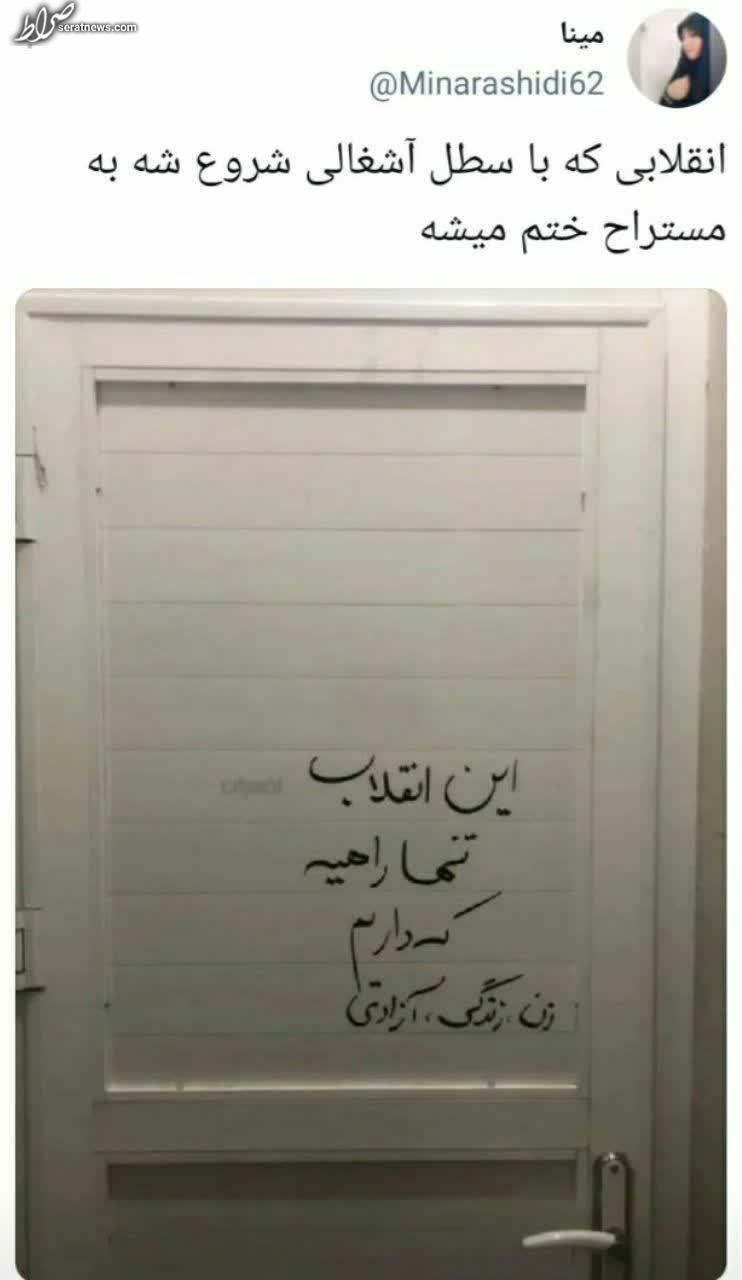 صراط
seratnews.com
مینا
@Minarashidi62
انقلابی که با سطل آشغالی شروع شه به
مستراح ختم میشه
این انقلاب
تنها راهیه
که داریم
زن، زندگی، آزادی